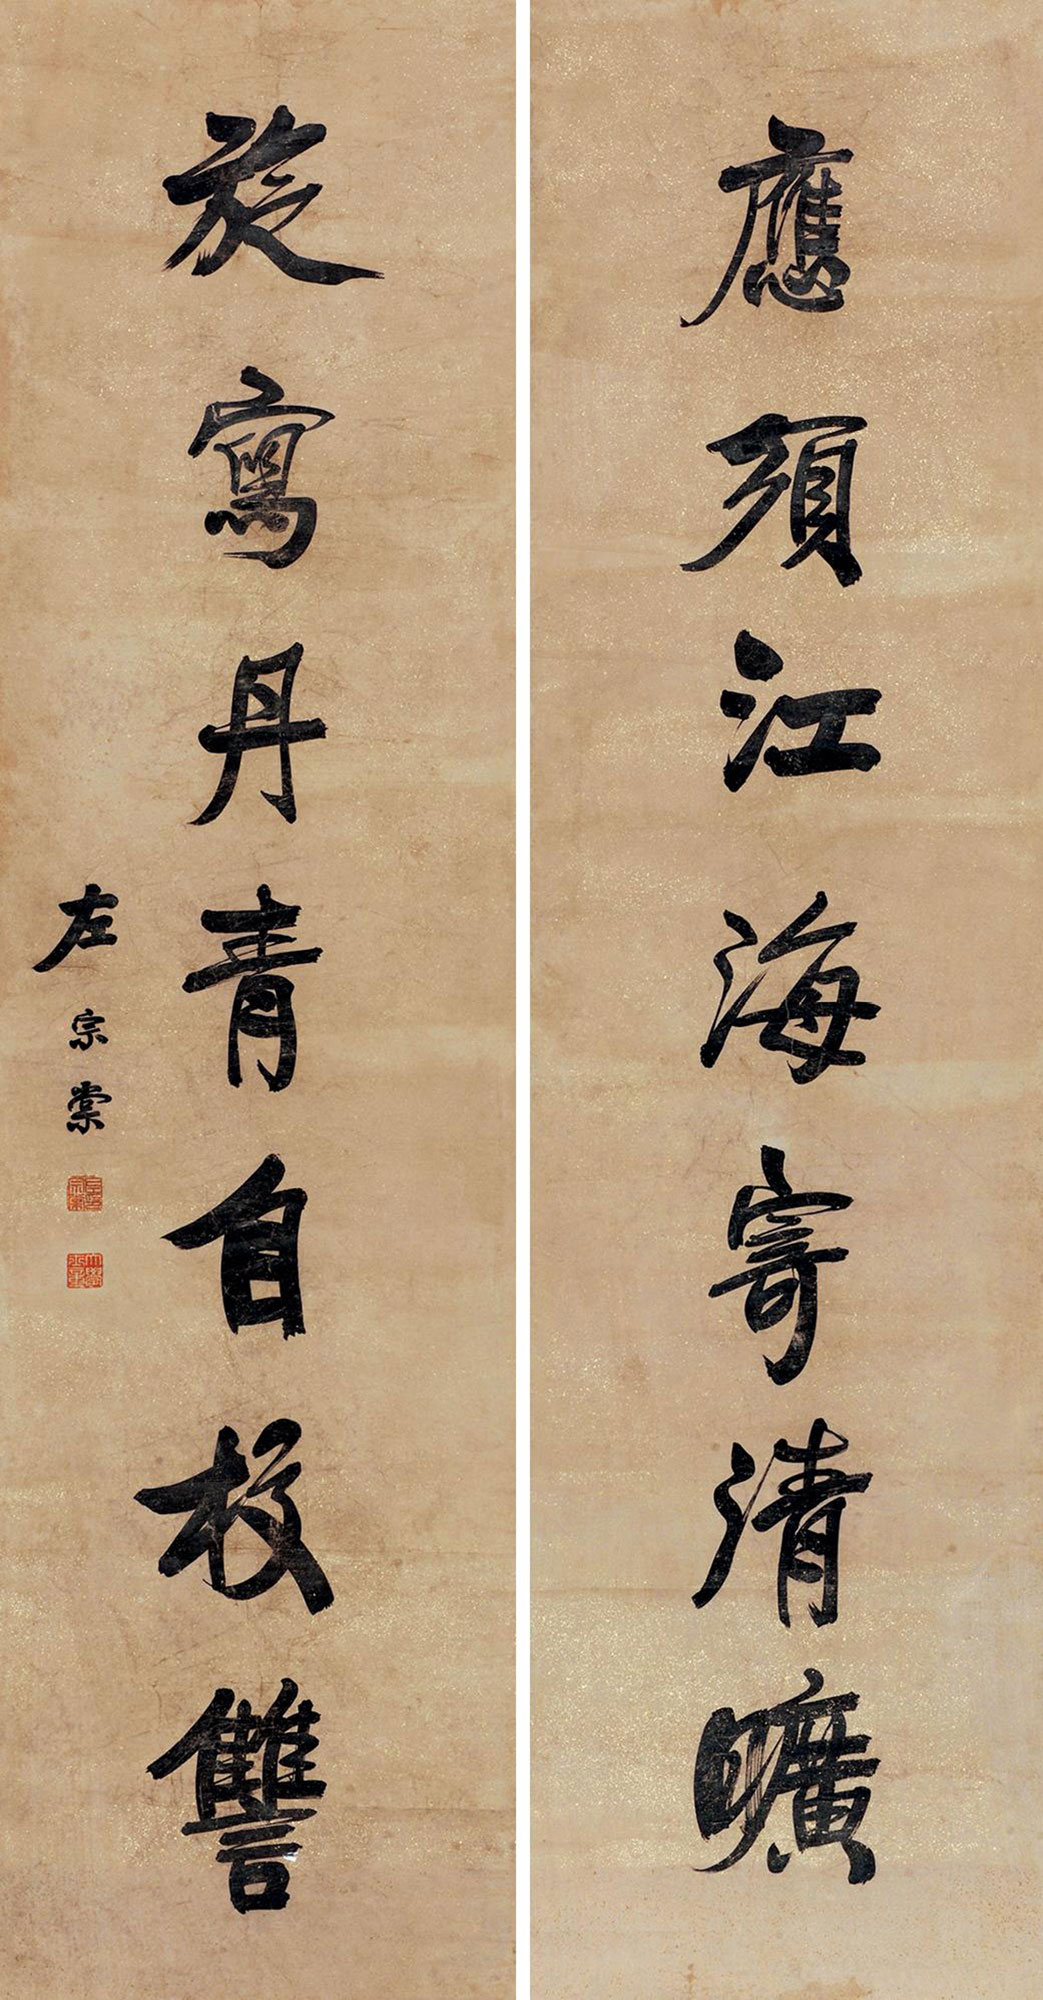 應須江海寄清曠
旋寫丹青自校讐
左宗棠